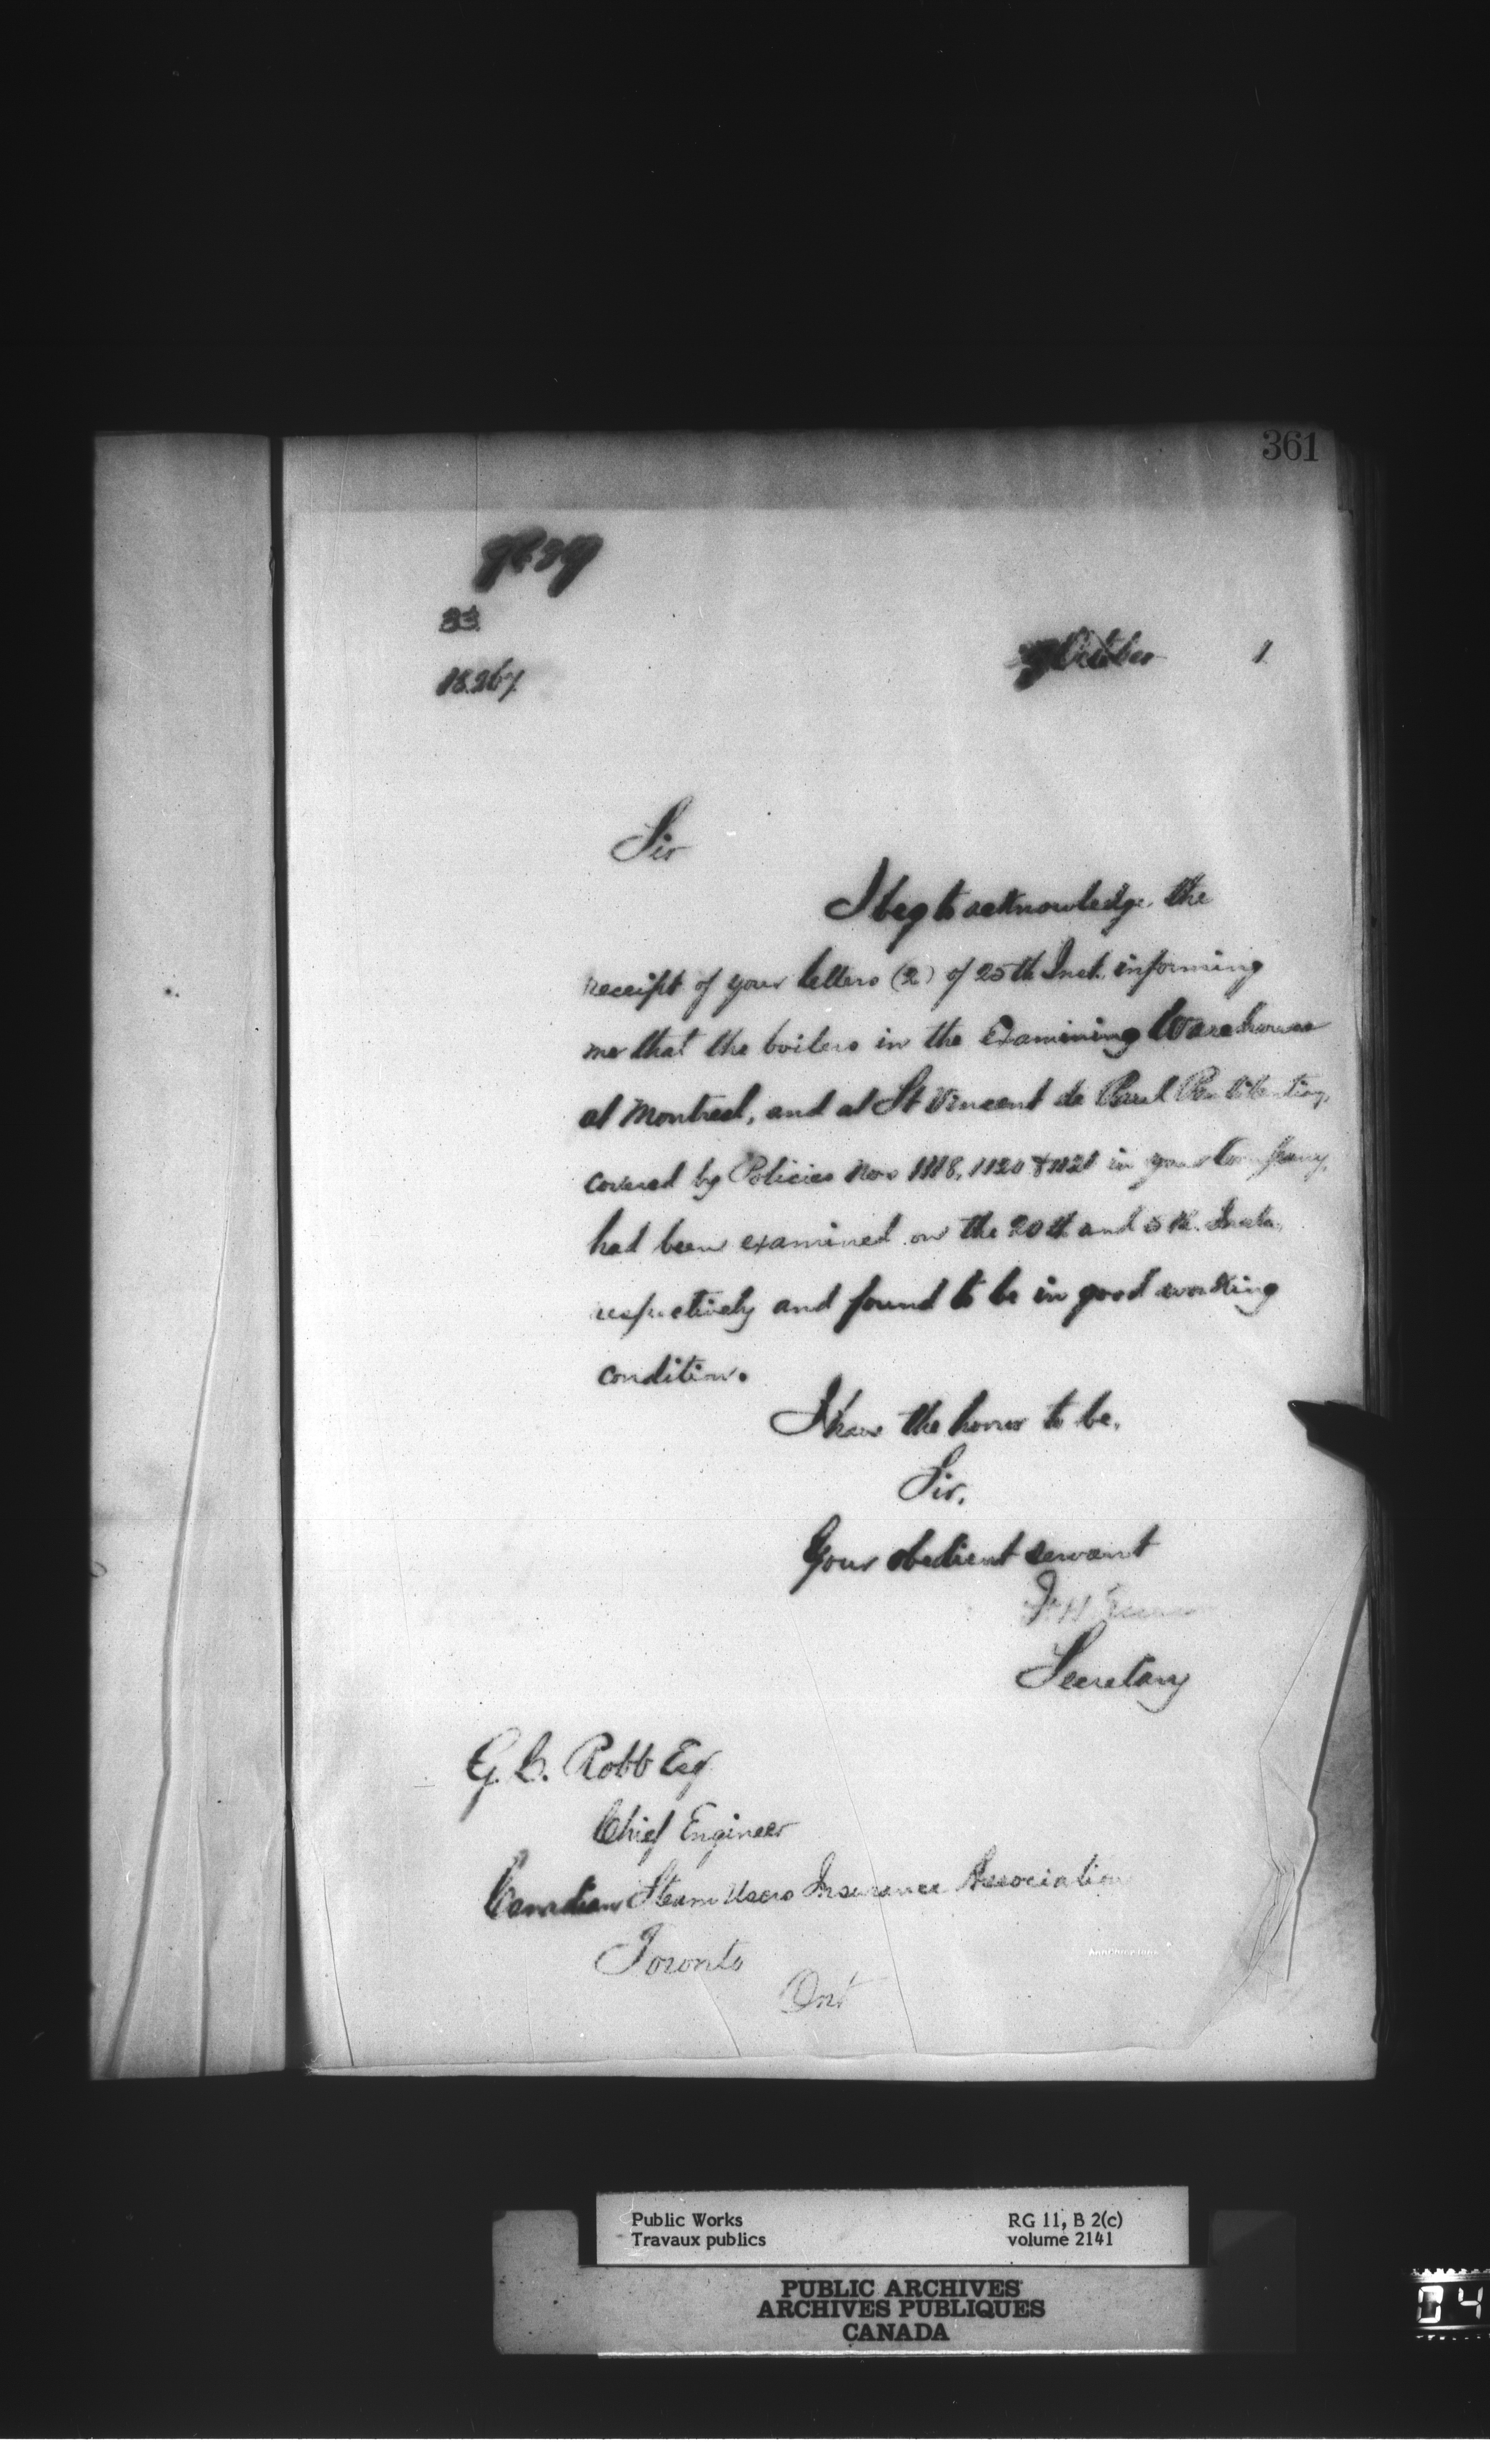 361
33
18267
October 1
Sir
I beg to acknowledge the
receipt of your letters (2) of 25th Inst. informing
me that the boilers in the Examining Warehouse
at Montreal, and at St Vincent de Paul Penitentiary,
covered by Policies Nos 1118, 1120 & 1121 in your Company,
had been examined on the 20th and 5th. Insts,
respectively and found to be in good working
condition.
I have the honor to be,
Sir,
Your obedient servant
Secretary
G. C. Robb Esq
Chief Engineer
Canadian Steam Users Insurance Association
Toronto
Ont
Public Works
Travaux publics
RG 11, B 2(c)
volume 2141
PUBLIC ARCHIVES
ARCHIVES PUBLIQUES
CANADA
04